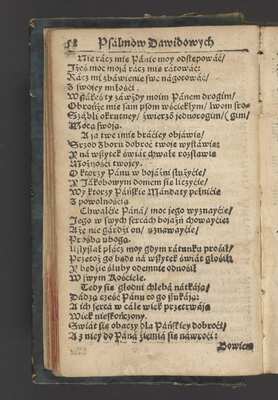 58 Psalmow Dawidowych
Nie racż mię Pánie moy odstępowáć/
Iżeś moc moją racż mię ratowáć:
Racż mi zbáwienie swe nágotowáć/
Z swojey miłości.
Wszákeś ty záwżdy moim Pánem drogim/
Obrońże mię sam psom wściekłym/ lwom srogim/
Száblі okrutney/ źwierzó jednorogim/
Mocą swoją.
A ja twe imię bráciey objáwię/
Srzod Zboru dobroć twoję wysłáwię:
Y ná wszytek świát chwałę rozsławię
Możności twojey.
O ktorzy Páná w bojáźni służycie/
W Jákobowym domeм się liczycie/
Wy ktorzy Páńskie Mándaty pełnicie
Z powolnością
Chwalćie Páná/ moc jego wyznaycie/
Jego w swych sercach bojaźń chowaycie:
Aże nie gárdzi on/ uznawaycie/
Prośbą ubogą.
Usłyszał płácż moy gdym rátunku prośił/
Przetoż go będę ná wszytek świát głośił/
Y będzie śluby odemnie odnośił
W swym Kośćiele.
Tedy się głodni chlebá nátkáją/
Dádzą cżeść Pánu co go szukáją:
A ich sercá w cále wiek przetrwáją
Wiek nieskońcżony.
Świát się obácży dla Páńskiey dobroći/
A z niey do Páná źiemiá się náwroći:
Bowiem